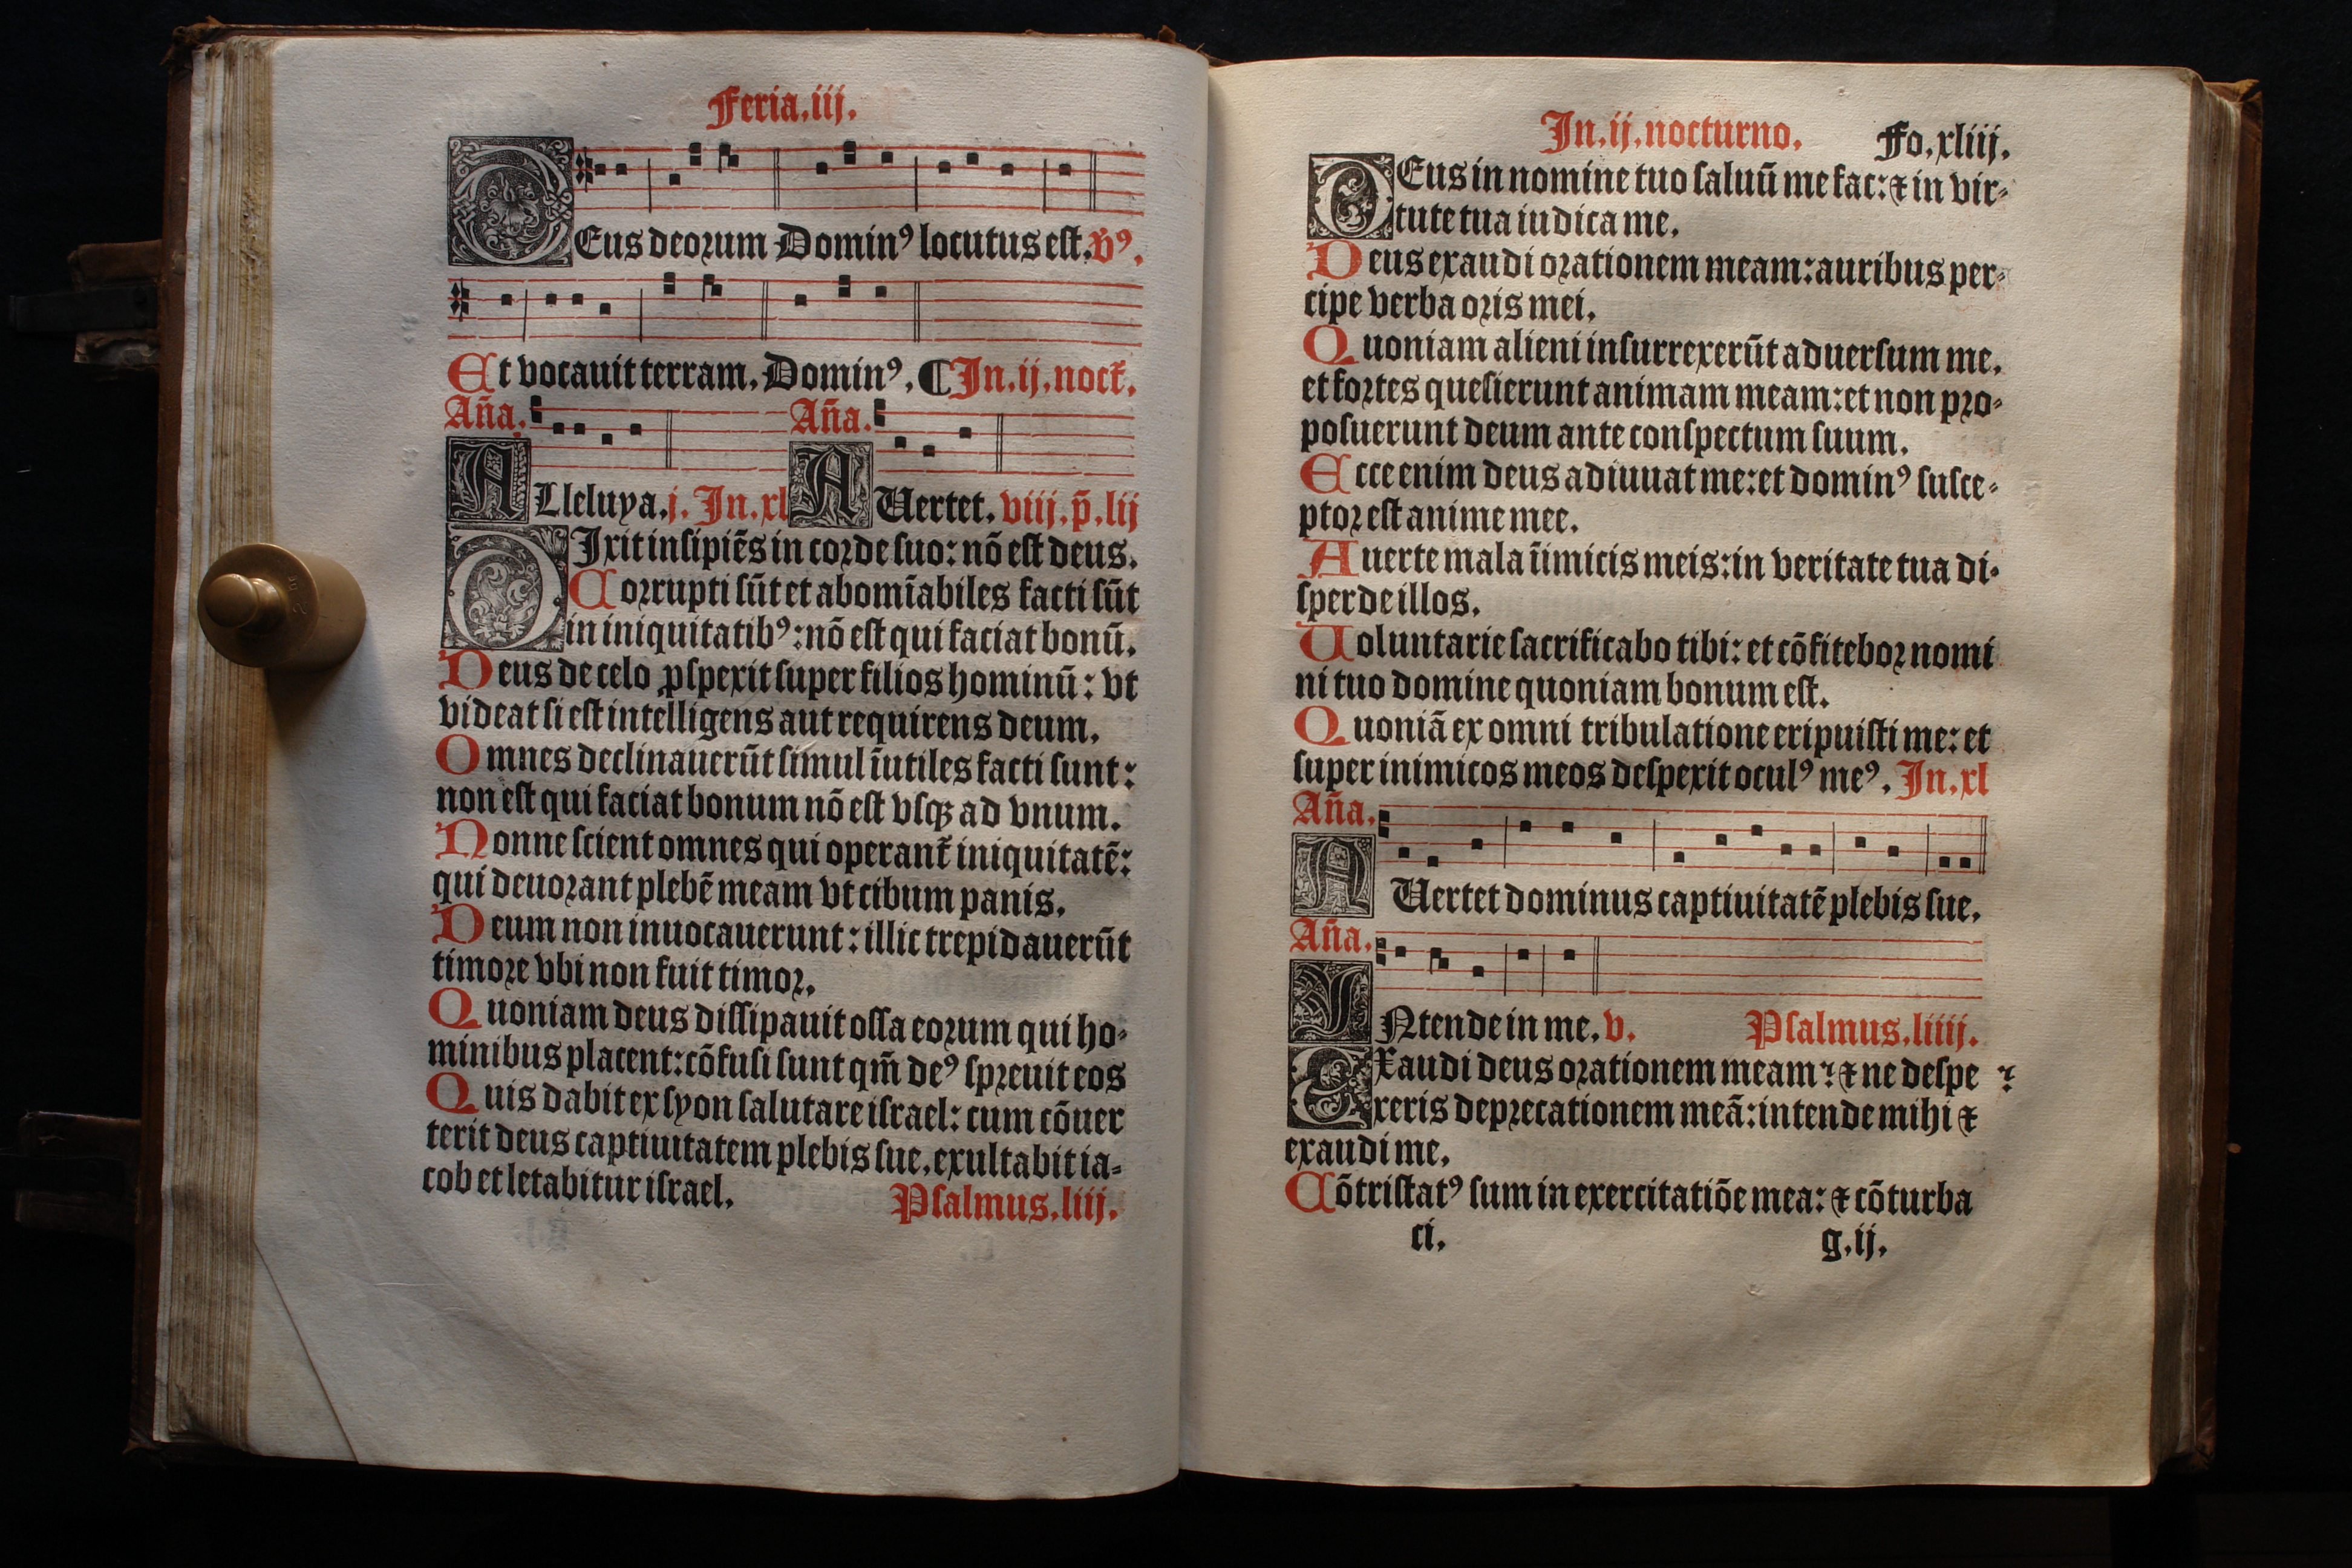 Feria.iij.
DEus deorum Dominꝰ locutus est. v̄ꝰ.
Et vocauit terram. Dominꝰ. ¶ In.ij.noct᷑.
Aña. Aña.
ALleluya.j. In.xl AUertet. viij. p̄. lij
DIxit insipiēs in corde suo: nō est deus.
Corrupti sūt et abomīabiles facti sūt
in iniquitatibꝰ: nō est qui faciat bonū.
Deus de celo ꝓspexit super filios hominū: vt
videat si est intelligens aut requirens deum.
Omnes declinauerūt simul īutiles facti sunt:
non est qui faciat bonum nō est vsqꝫ ad vnum.
Nonne scient omnes qui operant᷑ iniquitatē:
qui deuorant plebē meam vt cibum panis.
Deum non inuocauerunt: illic trepidauerūt
timore vbi non fuit timor.
Quoniam deus dissipauit ossa eorum qui ho-
minibus placent: cōfusi sunt qm̄ deꝰ spreuit eos
Quis dabit ex syon salutare israel: cum cōuer
terit deus captiuitatem plebis sue, exultabit ia-
cob et letabitur israel. Psalmus.liij.
In.ij.nocturno. Fo.xliij.
DEus in nomine tuo saluū me fac: ⁊ in vir-
tute tua iudica me.
Deus exaudi orationem meam: auribus per-
cipe verba oris mei.
Quoniam alieni insurrexerūt aduersum me,
et fortes quesierunt animam meam: et non pro-
posuerunt deum ante conspectum suum.
Ecce enim deus adiuuat me: et dominꝰ susce-
ptor est anime mee.
Auerte mala īimicis meis: in veritate tua di-
sperde illos.
Uoluntarie sacrificabo tibi: et cōfitebor nomi
ni tuo domine quoniam bonum est.
Quoniā ex omni tribulatione eripuisti me: et
super inimicos meos despexit oculꝰ meꝰ. In.xl
Aña.
AUertet dominus captiuitatē plebis sue.
Aña.
INtende in me. v. Psalmus.liiij.
EXaudi deus orationem meam: ⁊ ne despe
xeris deprecationem meā: intende mihi ⁊
exaudi me.
Cōtristatꝰ sum in exercitatiōe mea: ⁊ cōturba
ci. g.ij.